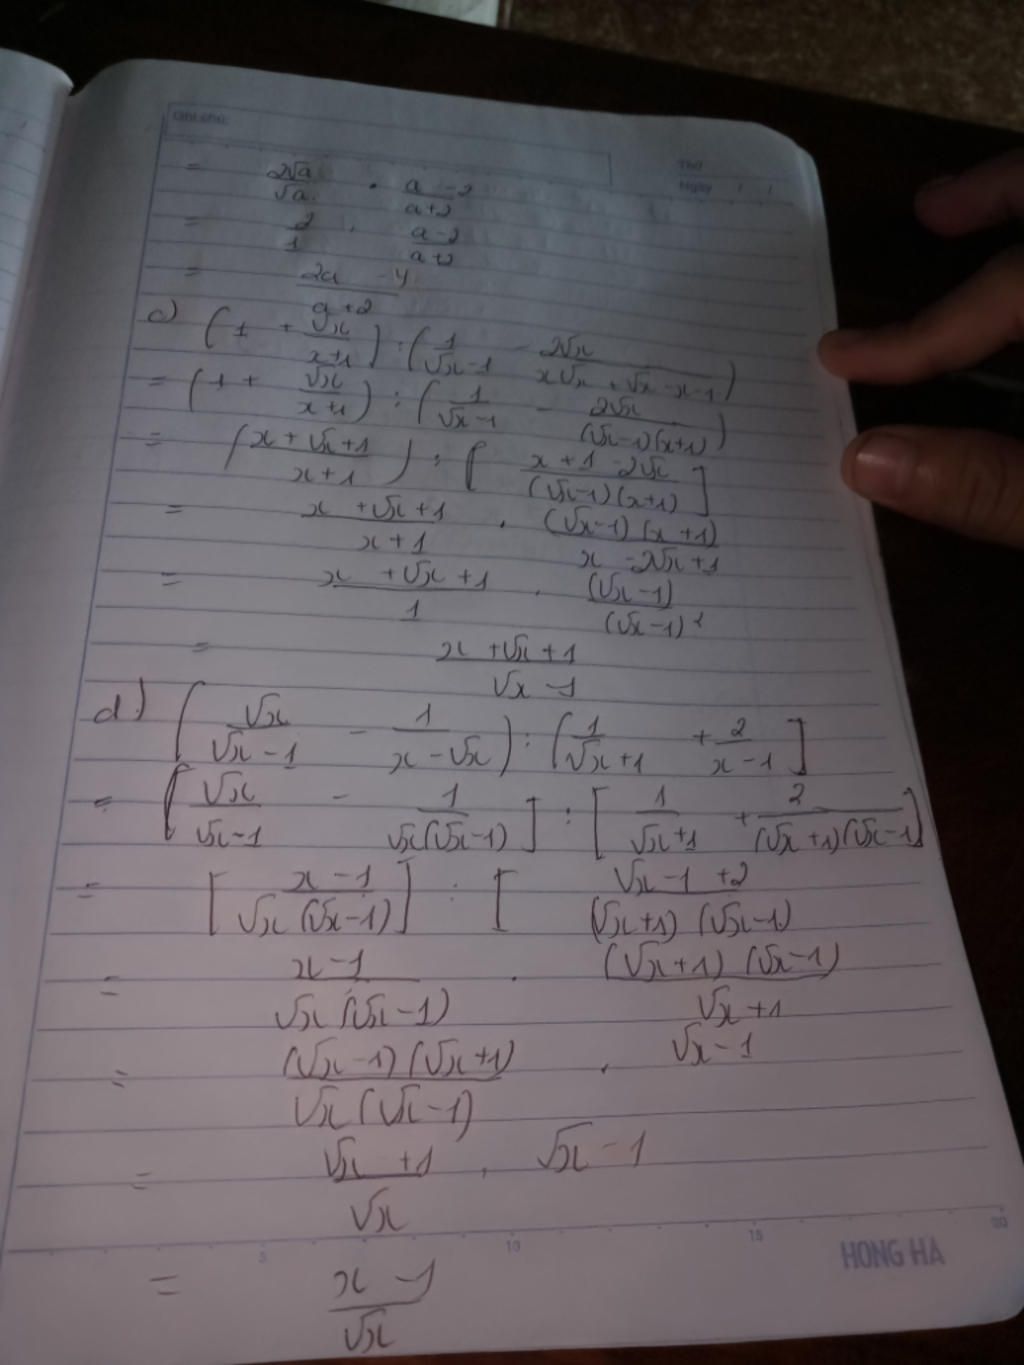 Ghi chú:
Thứ
Ngày / /
= 2√a/√a . a-2/a+2
= 2/1 . a-2/a+2
= 2a - 4/a+2
c) (1 + √x/x+1) : (1/√x-1 - 2√x/x√x + √x - x - 1)
= (1 + √x/x+1) : (1/√x-1 - 2√x/(√x-1)(x+1))
= (x+√x+1/x+1) : [x+1-2√x/(√x-1)(x+1)]
= x+√x+1/x+1 . (√x-1)(x+1)/x-2√x+1
= x+√x+1/1 . (√x-1)/(√x-1)²
= x+√x+1/√x-1
d) (√x/√x-1 - 1/x-√x) : (1/√x+1 + 2/x-1]
= [√x/√x-1 - 1/√x(√x-1)] : [1/√x+1 + 2/(√x+1)(√x-1)]
= [x-1/√x(√x-1)] : [√x-1+2/(√x+1)(√x-1)
= x-1/√x(√x-1) . (√x+1)(√x-1)/√x+1
= (√x-1)(√x+1)/√x(√x-1) . √x-1
= √x+1/√x . √x-1
5 10 15 20
HONG HA
= x-1/√x